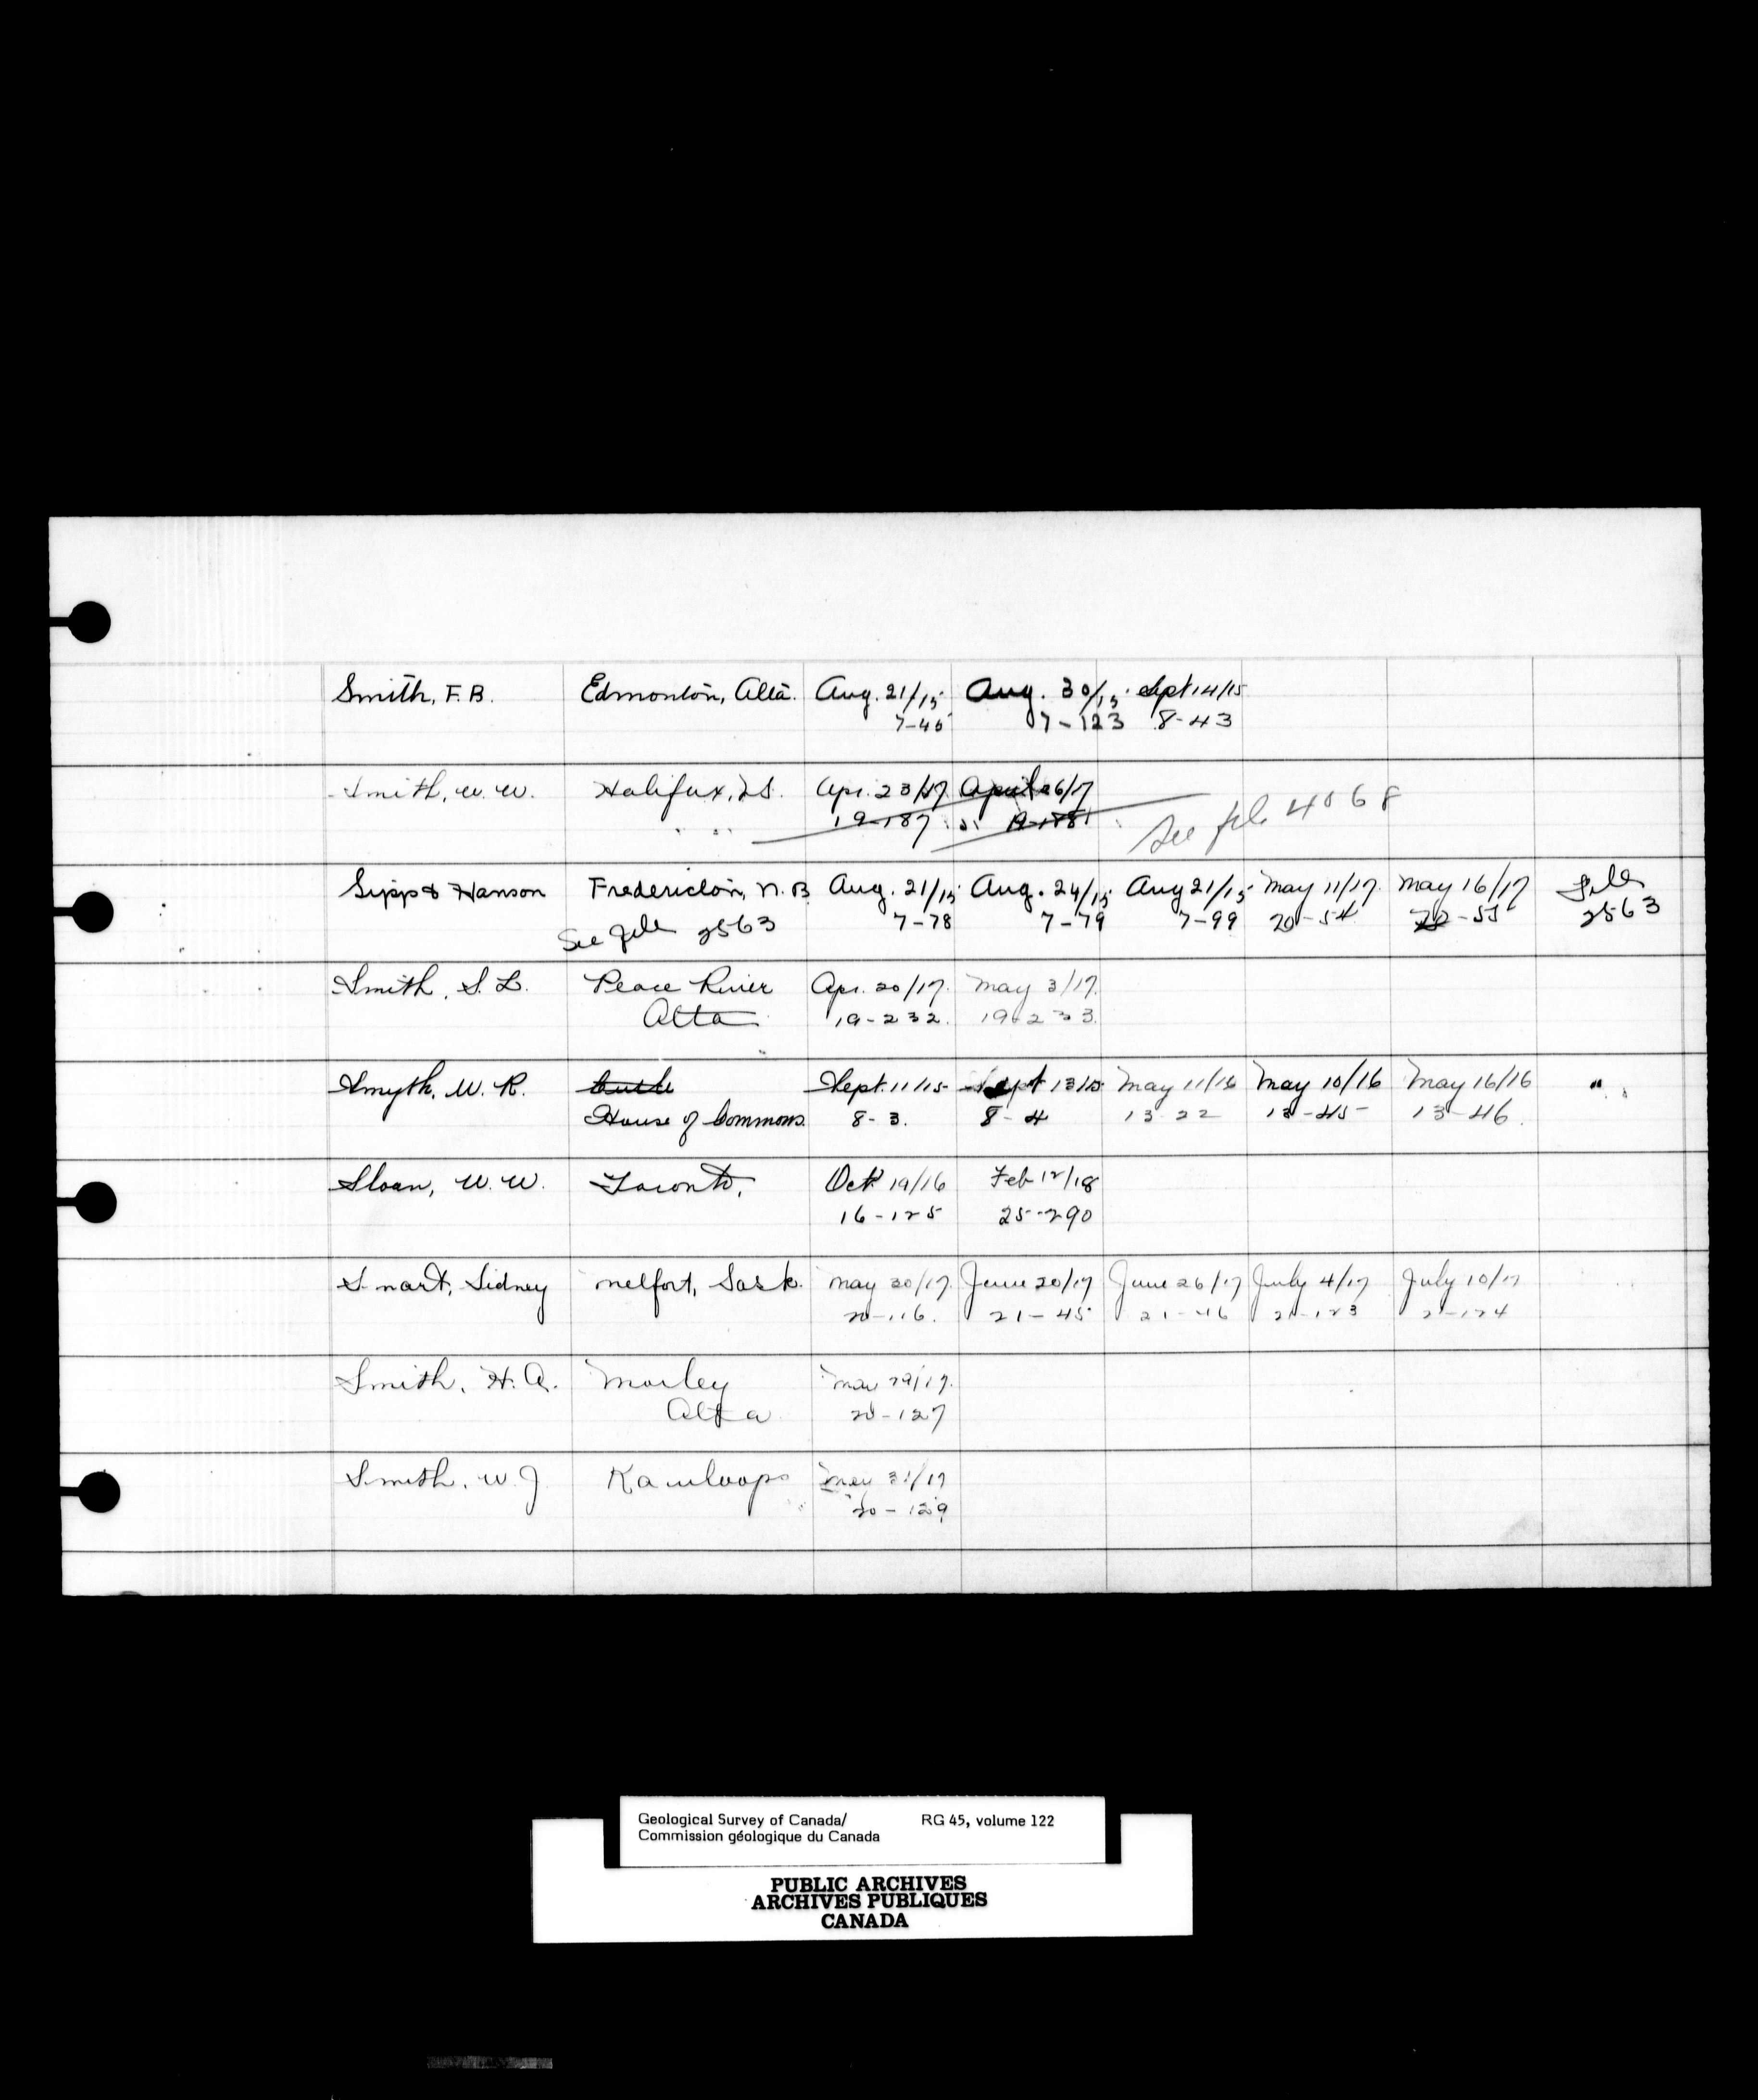 Smith, F.B. Edmonton, Alta. Aug. 21/15 Aug. 30/15 Sept 14/15
7-45 7-123 8-43
Smith, W. W. Halifax, N.S. Apr. 23/17 April 26/17
19-187 19-188 See file 4068
Sipp & Hanson Fredericton, N.B. Aug. 21/15 Aug. 24/15 Aug 21/15 May 11/17 May 16/17 File
See file 2563 7-78 7-79 7-99 20-54 20-55 2563
Smith, S. L. Peace River Apr. 20/17. May 3/17.
Alta 19-232. 19-233.
Smyth, W. R. Sept. 11/15 Sept 13/15 May 11/16 May 10/16 May 16/16 "
House of Commons. 8-3. 8-4 13-22 13-45 13-46.
Sloan, W. W. Toronto, Oct 19/16 Feb 12/18
16-125 25-290
Smart, Sidney Melfort, Sask. May 30/17. June 20/17 June 26/17 July 4/17 July 10/17
20-116. 21-45 21-46 21-123 21-124
Smith, H. A. Morley May 29/17.
Alta 20-127
Smith, W. J. Kamloops May 31/17
20-129
Geological Survey of Canada/ RG 45, volume 122
Commission géologique du Canada
PUBLIC ARCHIVES
ARCHIVES PUBLIQUES
CANADA